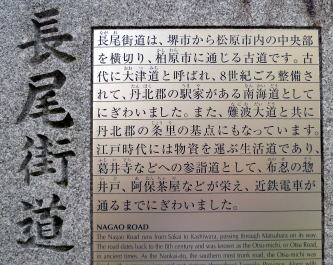 長尾街道
長尾街道は、堺市から松原市内の中央部
を横切り、柏原市に通じる古道です。古
代に大津道と呼ばれ、8世紀ごろ整備さ
れて、丹北郡の駅家がある南海道として
にぎわいました。また、難波大道と共に
丹北郡の条里の基点にもなっています。
江戸時代には物資を運ぶ生活道であり、
葛井寺などへの参詣道として、布忍の惣
井戸、阿保茶屋などが栄え、近鉄電車が
通るまでにぎわいました。
NAGAO ROAD
The Nagao Road runs from Sakai to Kashiwara, passing through Matsubara on its way.
The road dates back to the 8th century and was known as the Otsu-michi, or Otsu Road,
in ancient times. As the Nankai-do, the southern most trunk road, the Otsu-michi was